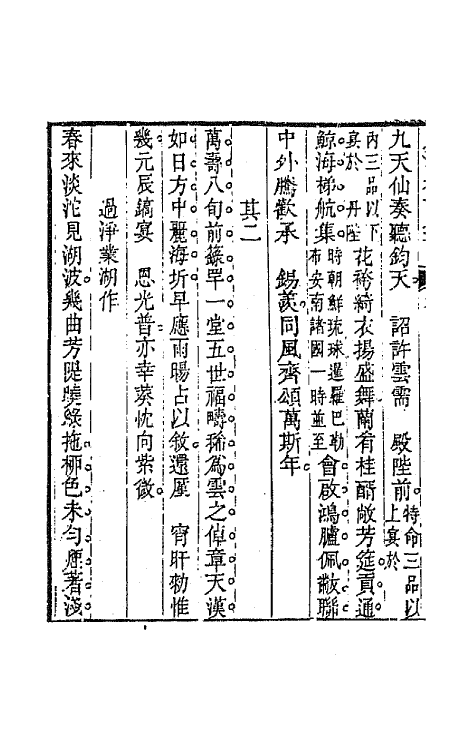 九天仙奏聽鈞天　詔許雲需　殿陛前特命三品以上宴於
內三品以下宴於　丹陛花袴綺衣揚盛舞蘭肴桂醑敞芳筵貢通
鯨海梯航集時朝鮮琉球暹羅巴勒布安南諸國一時並至會啟鴻臚佩黻聯
中外騰歡承　錫羨同風齊頌萬斯年
其二
萬壽八旬前籙罕一堂五世福疇稀為雲之倬章天漢
如日方中麗海圻早應雨暘占以敘還廑　宵旰勑惟
幾元辰鎬宴　恩光普亦幸葵忱向紫微
過淨業湖作
春來淡沱見湖波幾曲芳隄曉綠拖柳色未勻煙著淺